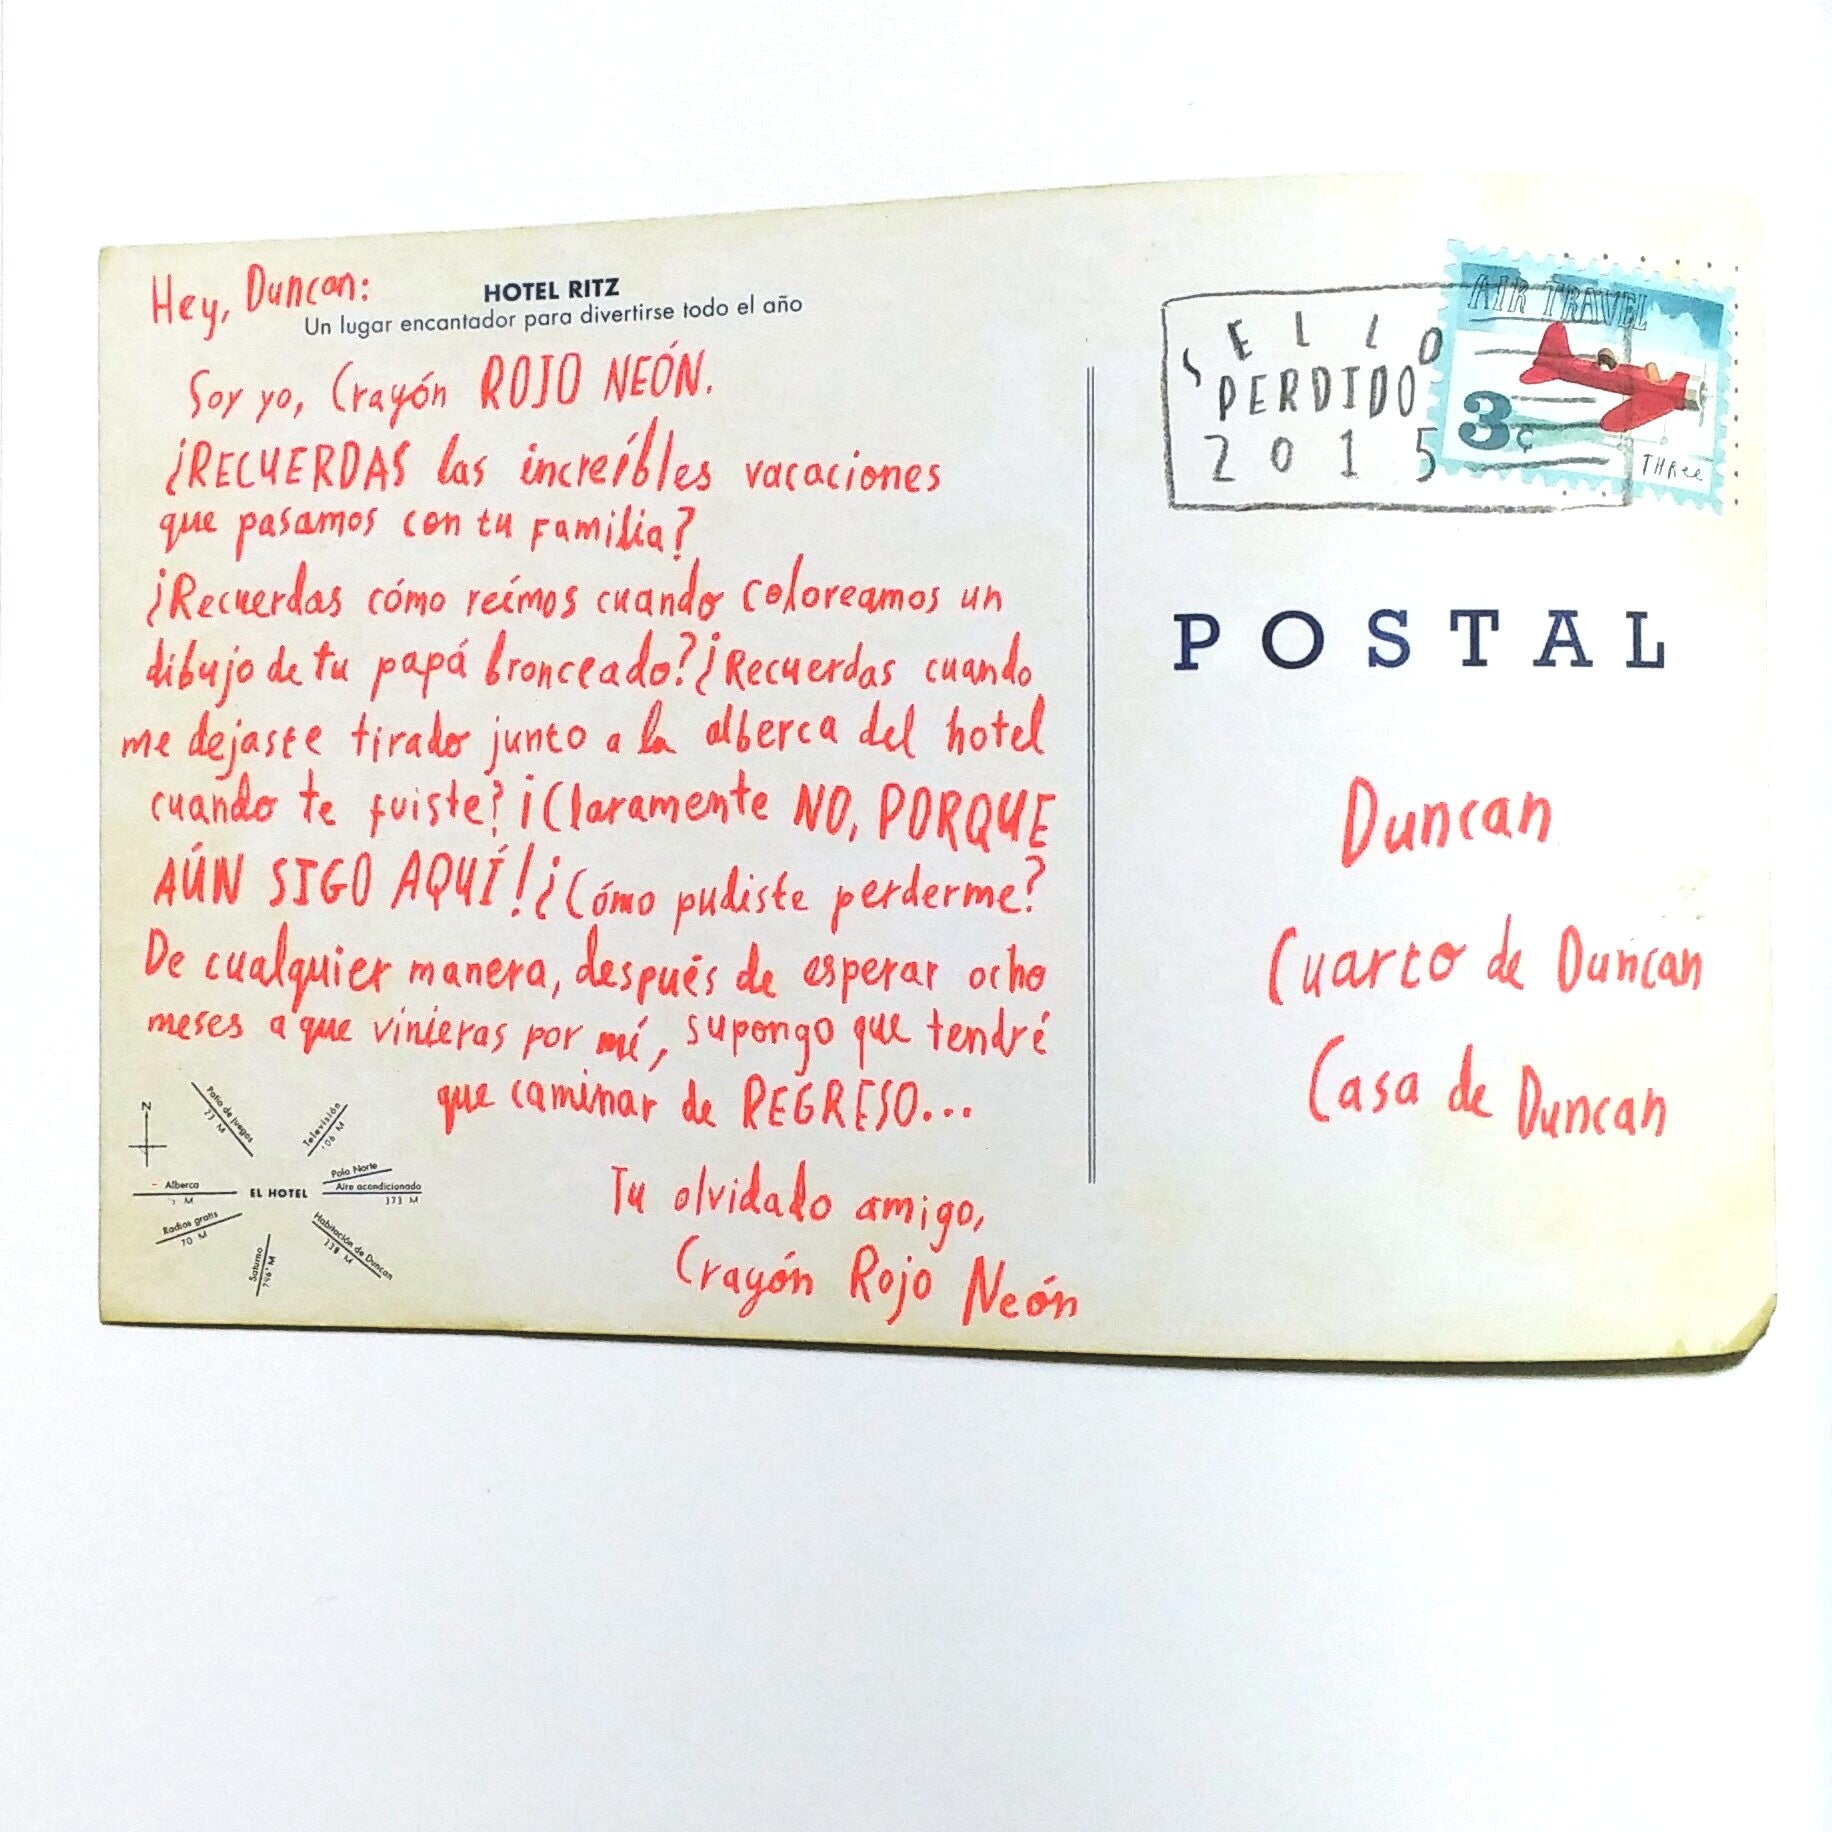 Hey, Duncan:
HOTEL RITZ
Un lugar encantador para divertirse todo el año
Soy yo, Crayón ROJO NEÓN.
¿RECUERDAS las increíbles vacaciones
que pasamos con tu familia?
¿Recuerdas cómo reímos cuando coloreamos un
dibujo de tu papá bronceado? ¿Recuerdas cuando
me dejaste tirado junto a la alberca del hotel
cuando te fuiste? ¡Claramente NO, PORQUE
AÚN SIGO AQUÍ! ¿Cómo pudiste perderme?
De cualquier manera, después de esperar ocho
meses a que vinieras por mí, supongo que tendré
que caminar de REGRESO...
Tu olvidado amigo,
Crayón Rojo Neón
N
Patio de juegos
23 M
Televisión
Polo Norte
Aire acondicionado
Alberca
M
EL HOTEL
Radios gratis
70 M
Saturno
Habitación de Duncan
SELLO
PERDIDO
2015
AIR TRAVEL
3¢
THRee
POSTAL
Duncan
Cuarto de Duncan
Casa de Duncan